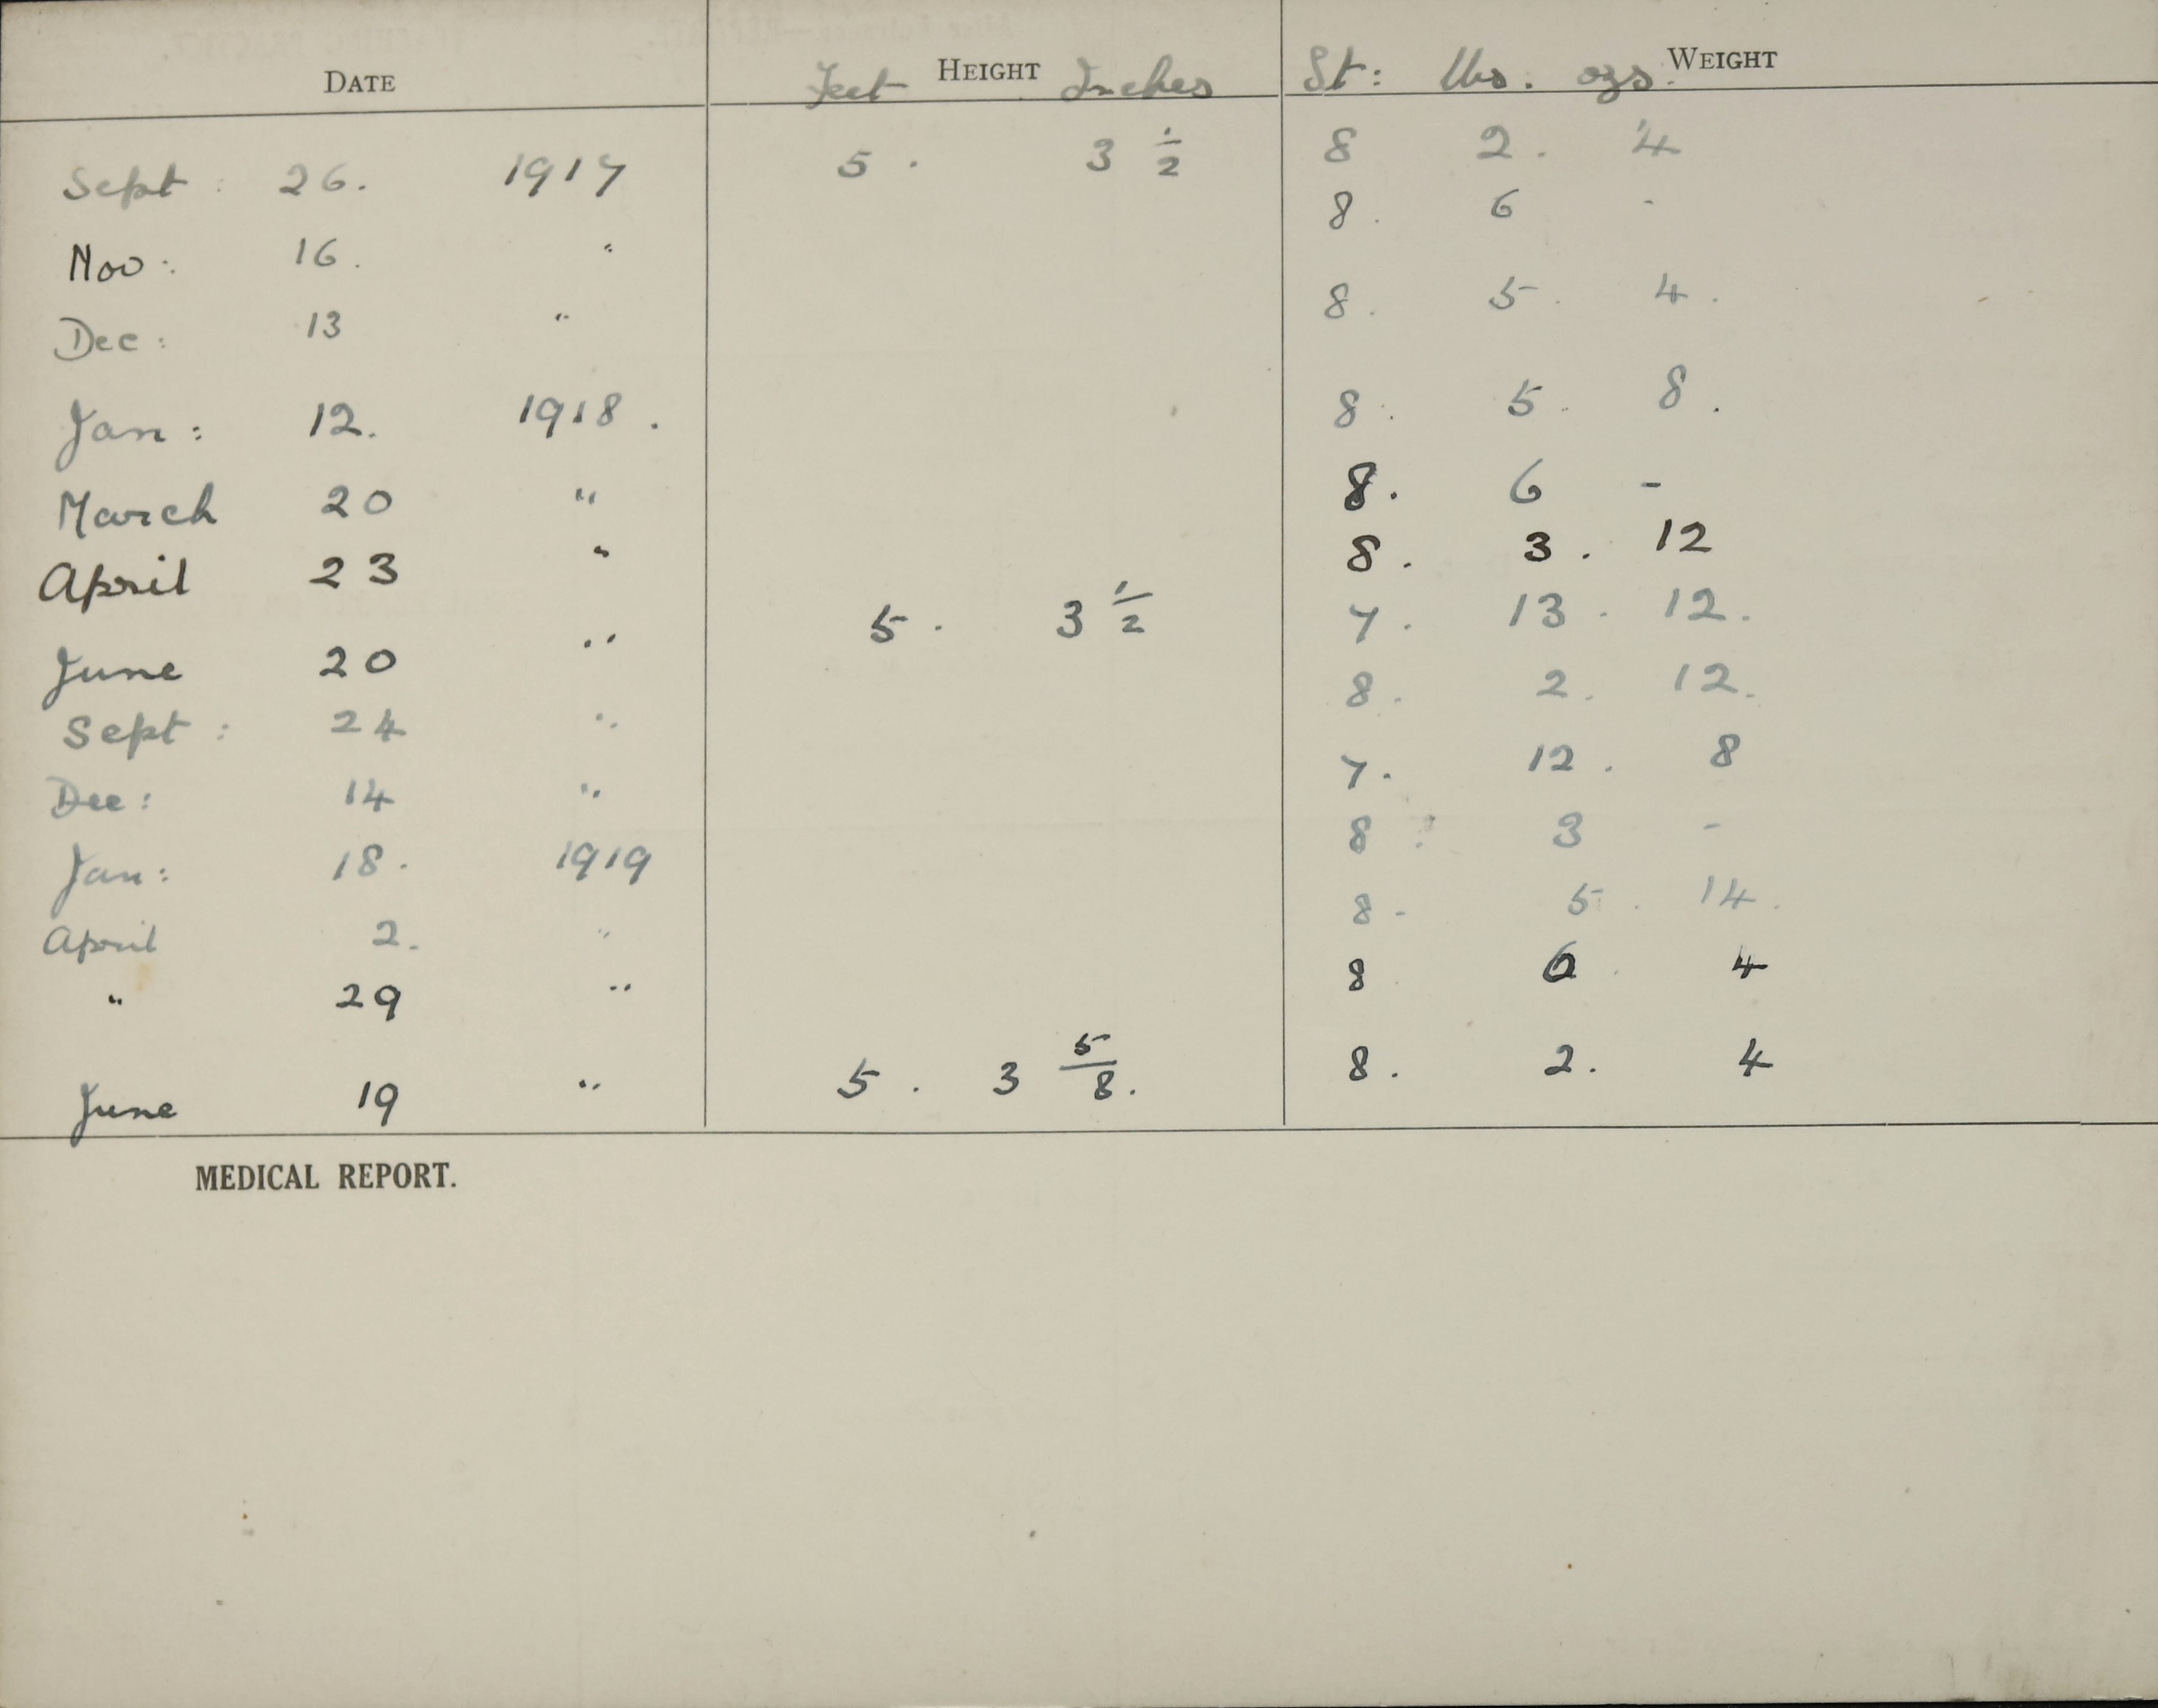 DATE HEIGHT Feet Inches WEIGHT St: lbs. ozs.
Sept: 26. 1917 5. 3 1/2 8 2. 4
Nov: 16. " 8. 6 -
Dec: 13 " 8. 5. 4.
Jan: 12. 1918. 8. 5. 8.
March 20 " 8. 6 -
April 23 " 8. 3. 12
June 20 " 5. 3 1/2 7. 13. 12.
Sept: 24 " 8. 2. 12.
Dec: 14 " 7. 12. 8
Jan: 18. 1919 8. 3 -
April 2. " 8. 5. 14.
" 29 " 8 6. 4
June 19 " 5. 3 5/8. 8. 2. 4
MEDICAL REPORT.